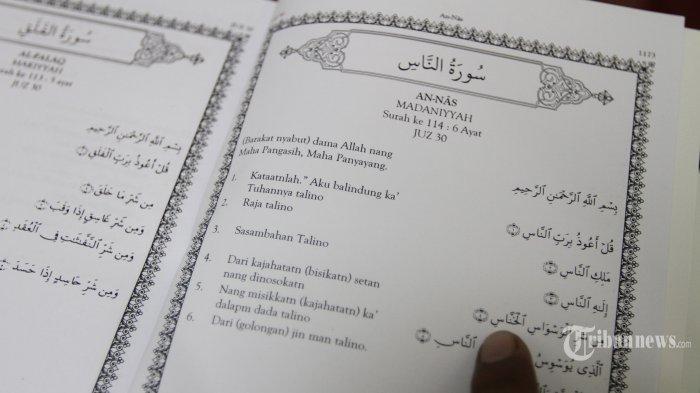 سُورَةُ الْفَلَقِ
AL-FALAQ
MAKIYYAH
Surah ke 113 : 5 Ayat
JUZ 30
بِسْمِ اللَّهِ الرَّحْمَٰنِ الرَّحِيمِ
قُلْ أَعُوذُ بِرَبِّ الْفَلَقِ ۝١
مِن شَرِّ مَا خَلَقَ ۝٢
وَمِن شَرِّ غَاسِقٍ إِذَا وَقَبَ ۝٣
وَمِن شَرِّ النَّفَّاثَاتِ فِي الْعُقَدِ ۝٤
وَمِن شَرِّ حَاسِدٍ إِذَا حَسَدَ ۝٥
An-Nâs
1173
سُورَةُ النَّاسِ
AN-NÂS
MADANIYYAH
Surah ke 114 : 6 Ayat
JUZ 30
(Barakat nyabut) dama Allah nang
Maha Pangasih, Maha Panyayang.
بِسْمِ اللَّهِ الرَّحْمَٰنِ الرَّحِيمِ
1. Kataatnlah." Aku balindung ka'
Tuhannya talino
قُلْ أَعُوذُ بِرَبِّ النَّاسِ ۝١
2. Raja talino
مَلِكِ النَّاسِ ۝٢
3. Sasambahan Talino
إِلَٰهِ النَّاسِ ۝٣
4. Dari kajahatatn (bisikatn) setan
nang dinosokatn
الْوَسْوَاسِ الْخَنَّاسِ ۝٤
5. Nang misikkatn (kajahatatn) ka'
dalapm dada talino
الَّذِي يُوَسْوِسُ
النَّاسِ ۝٥
6. Dari (golongan) jin man talino.
Tribunnews.com